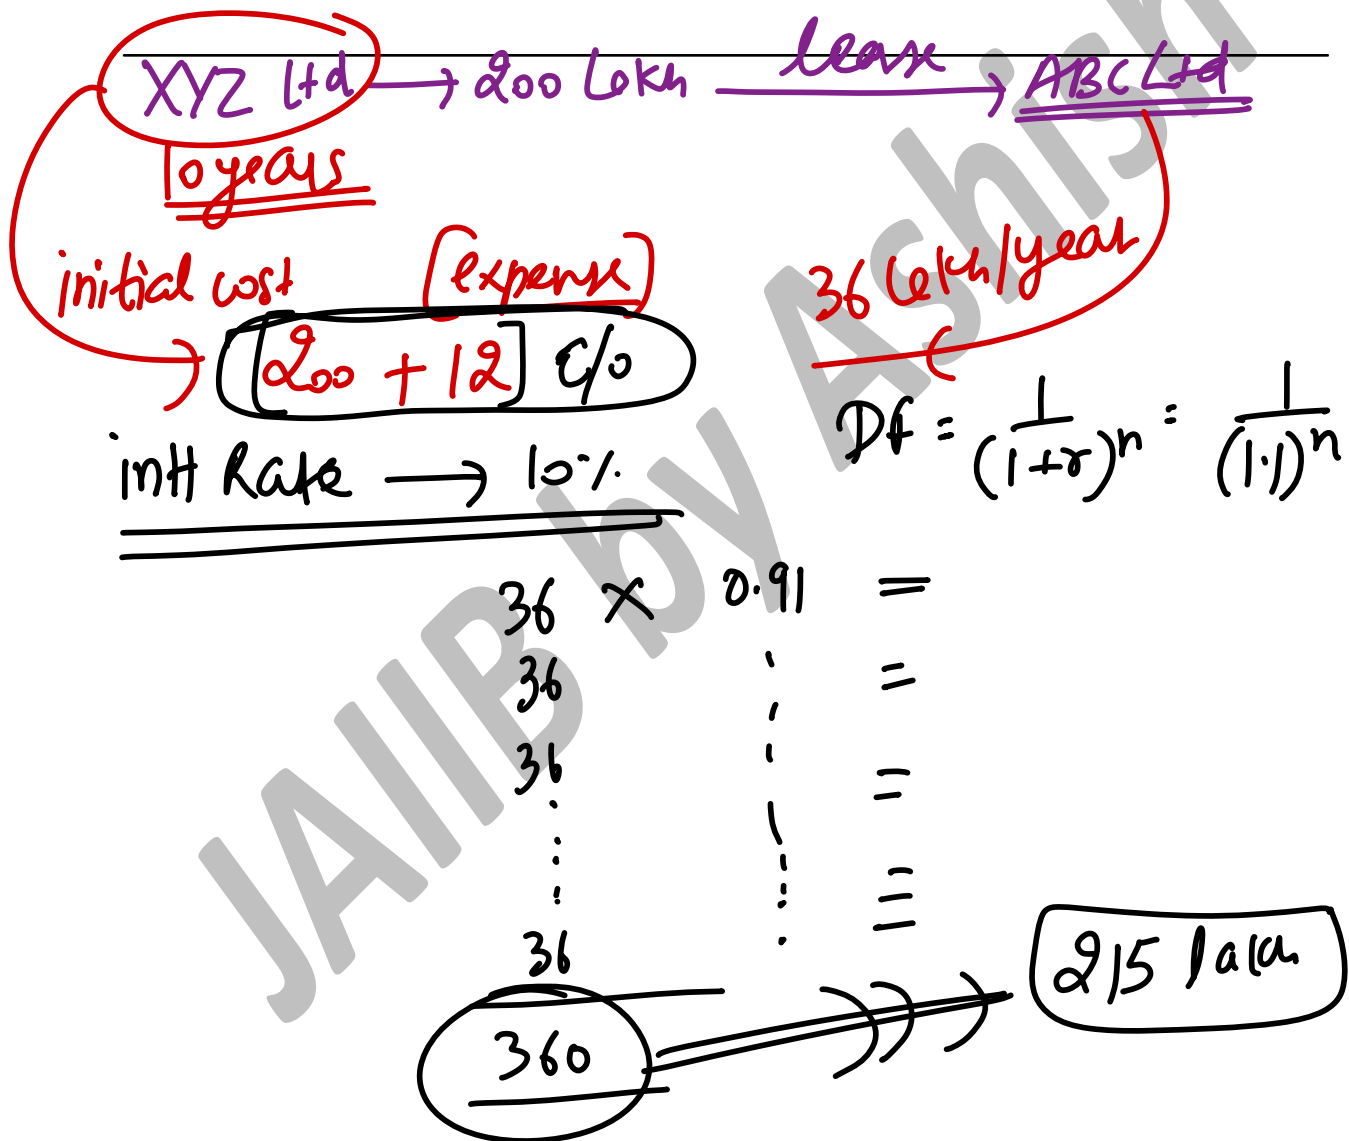 XYZ Ltd → 200 Lakh lease → ABC Ltd
10 years
initial cost [expense] 36 lakh/year
[200 + 12] c/o
Df = 1/(1+r)^n = 1/(1.1)^n
intt Rate → 10%
36 × 0.91 =
36 =
36 =
=
36
360 215 lakh
JAIIB by Ashish